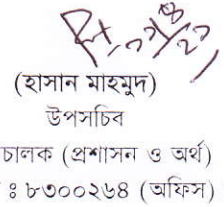 (হাসান মাহমুদ)
উপসচিব
চালক (প্রশাসন ও অর্থ)
ঃ ৮৩০০২৬৪ (অফিস)